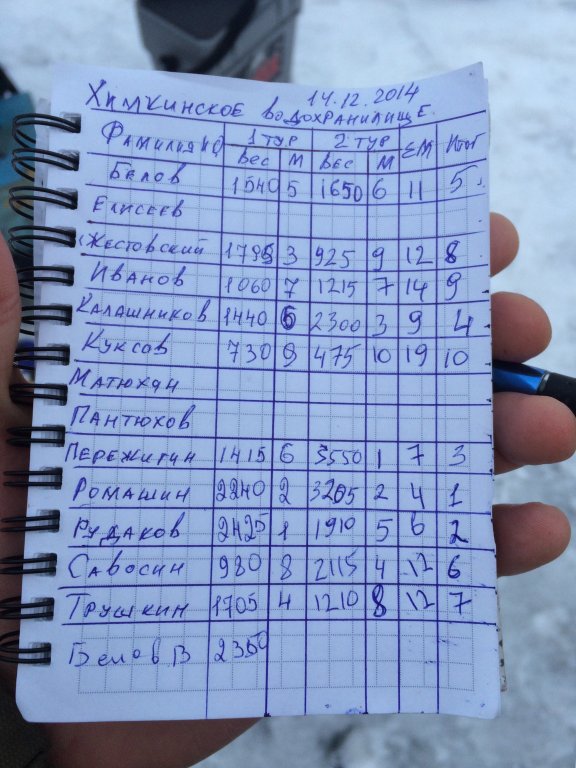 14.12.2014
Химкинское водохранилище.
Фамилия ИО 1 тур 2 тур ΣМ Итог
Вес М Вес М
Белов 1540 5 1650 6 11 5
Елисеев
Жестовский 1795 3 925 9 12 8
Иванов 1060 7 1215 7 14 9
Калашников 1440 6 2300 3 9 4
Куксов 730 9 475 10 19 10
Матюхин
Пантюхов
Пережигин 1415 6 3550 1 7 3
Ромашин 2240 2 3205 2 4 1
Рудаков 2425 1 1910 5 6 2
Савосин 980 8 2115 4 12 6
Трушкин 1705 4 1210 8 12 7
Белов В 2350